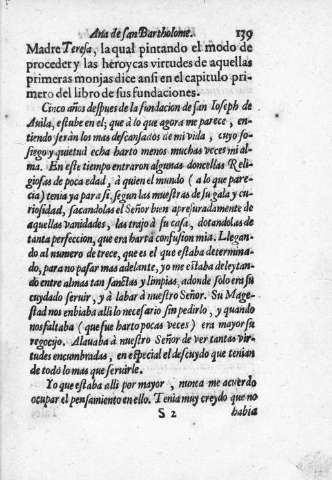 Ana de san Bartholome. 139
Madre Teresa, la qual pintando el modo de
proceder y las heroycas virtudes de aquellas
primeras monjas dice ansi en el capitulo pri-
mero del libro de sus fundaciones.
Cinco años despues de la fundacion de san Ioseph de
Auila, estube en el; que à lo que agora me parece, en-
tiendo seràn los mas descansados de mi vida, cuyo so-
siego y quietud echa harto menos muchas veces mi al-
ma. En este tiempo entraron algunas doncellas Reli-
giosas de poca edad, à quien el mundo (a lo que pare-
cia) tenia ya para si, segun las muestras de su gala y cu-
riosidad, sacandolas el Señor bien apresuradamente de
aquellas vanidades, las trajo à su casa, dotandolas de
tanta perfeccion, que era harta confusion mia. Llegan-
do al numero de trece, que es el que estaba determina-
do, para no pasar mas adelante, yo me estaba deleytan-
do entre almas tan sanctas y limpias, adonde solo era su
cuydado seruir, y à labar à nuestro Señor. Su Mage-
stad nos enbiaba alli lo necesario sin pedirlo, y quando
nos faltaba (que fue harto pocas veces) era mayor su
regocijo. Alauaba à nuestro Señor de ver tantas vir-
tudes encumbradas, en especial el descuydo que tenian
de todo lo mas que seruirle.
Yo que estaba alli por mayor, nunca me acuerdo
ocupar el pensamiento en ello. Tenia muy creydo que no
S 2 habia